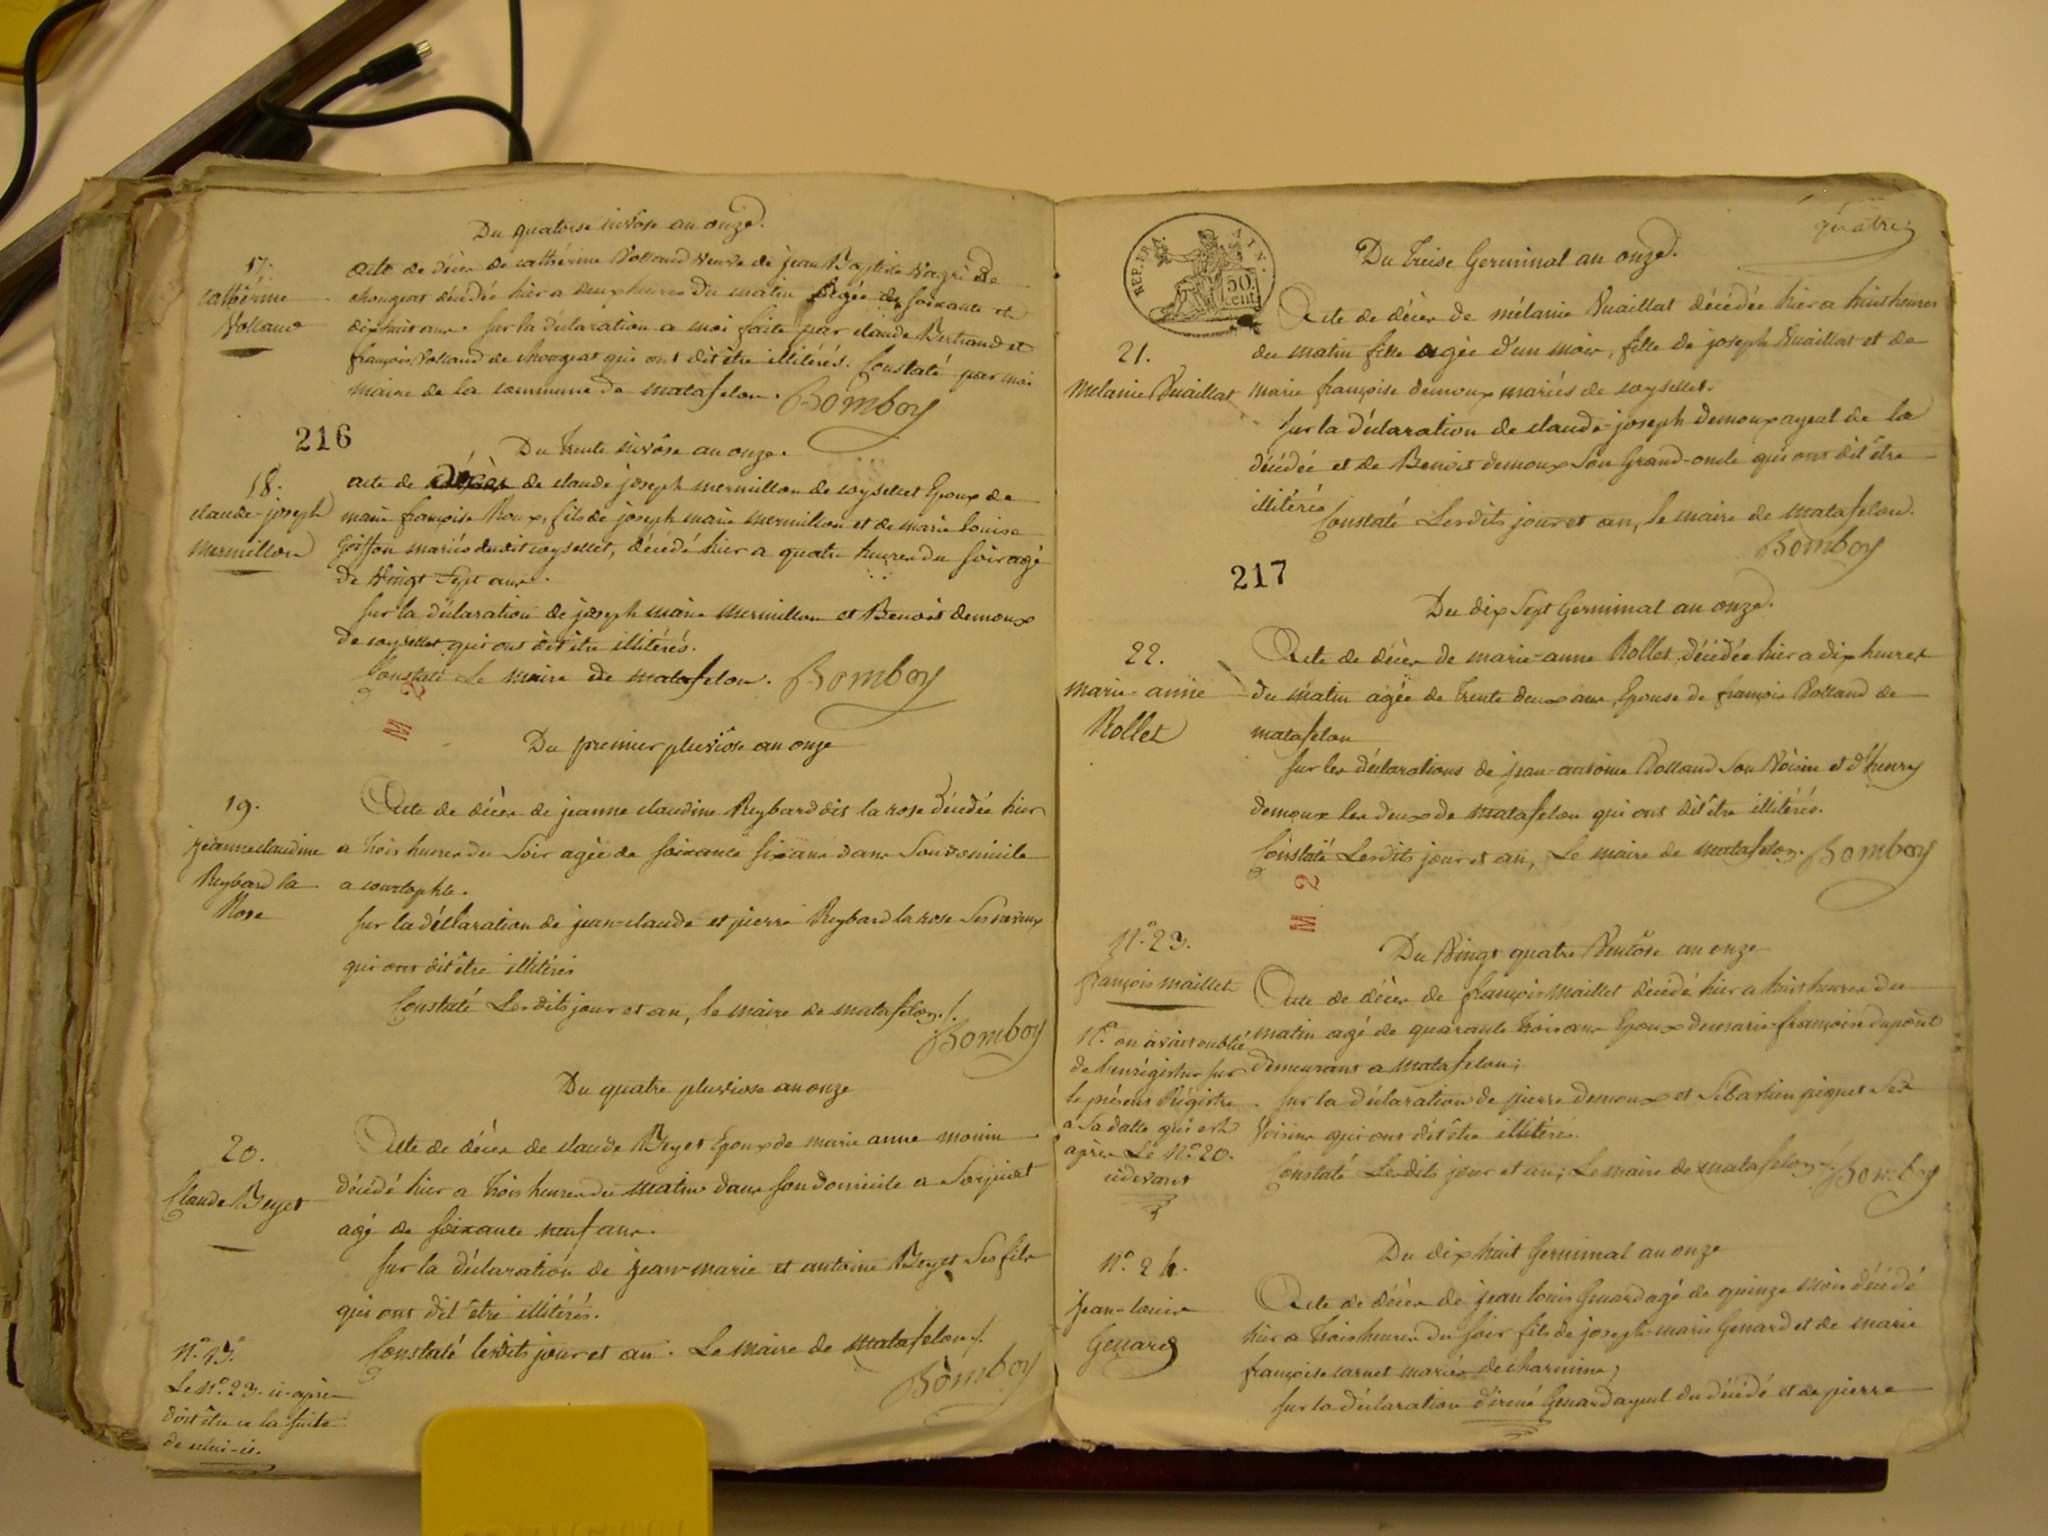 Du quatorse nivôse an onze.
17.
Cathérine
Volland
acte de décès de cathérine Volland veuve de jean Baptiste
chougeat décédée hier a deux heures du matin agée de soixante et
dixhuit ans. sur la déclaration a moi faite par claude Bertrand et
françois Volland de chougeat qui ont dit être illitérés. Constaté par moi
maire de la commune de matafelon. Bomboy
216
Du trente nivôse an onze.
18.
claude-joseph
mermillon
acte de décès de claude joseph mermillon de coyselet Epoux de
marie françoise Roux, fils de joseph marie mermillon et de marie louise
Goiffon mariés dudit coyselet, décédé hier a quatre heures du soir agé
de vingt sept ans.
sur la déclaration de joseph marie mermillon et Benoit demoux
de coyselet qui ont dit être illitérés.
Constaté Le maire de matafelon. Bomboy
M 2
Du premier pluviôse an onze
19.
jeanne claudine
Reybard la
Rose
Acte de décès de jeanne claudine Reybard dit la rose décédée hier
a trois heures du soir agée de soixante six ans dans son domicile
a courtophle.
sur la déclaration de jean-claude et pierre Reybard la rose ses neveux
qui ont dit être illitérés
Constaté Lesdits jour et an, le maire de matafelon./.
Bomboy
Du quatre pluviose an onze
20.
Claude Beyet
Acte de décès de claude Beyet Epoux de marie anne monin
décédé hier a trois heures du matin dans son domicile a Sorpiat
agé de soixante neuf ans.
sur la déclaration de jean-marie et antoine Beyet ses fils
qui ont dit être illitérés.
Constaté lesdits jour et an. Le maire de matafelon./.
Bomboy
Le N.º 23. ci-après
doit être a la suite
de celui-ci.
quatre
REP. FRA. AIN.
50 cent.
Du treise Germinal an onze.
21.
Mélanie Vuaillat
Acte de décès de mélanie Vuaillat décédée hier a huit heures
du matin fille agée d'un mois, fille de joseph Vuaillat et de
marie françoise demoux mariés de coyselet.
sur la déclaration de claude-joseph demoux ayeul de la
décédée et de Benoit demoux son Grand-oncle qui ont dit être
illitérés
Constaté Lesdits jour et an, le maire de matafelon.
Bomboy
217
Du dix sept Germinal an onze.
22.
marie-anne
Rollet
Acte de décès de marie-anne Rollet décédée hier a dix heures
du matin agée de trente deux ans, Epouse de françois Volland de
matafelon
sur les déclarations de jean-antoine Volland son voisin et d'henry
demoux les deux de matafelon qui ont dit être illitérés.
Constaté Lesdits jour et an, Le maire de matafelon. Bomboy
M. 2
Du vingt quatre Ventôse an onze
N.º 23.
françois maillet
N.ª on avait oublié
de l'enrégistrer sur
le présent Régistre
a sa datte qui est
après Le N.º 20.
cidevant
Acte de décès de françois Maillet décédé hier a huit heures du
matin agé de quarante trois ans Epoux de marie-françoise dupont
demeurant a matafelon;
sur la déclaration de pierre demoux et Sébastien piquet ses
voisins qui ont dit être illitérés.
Constaté Lesdits jour et an; Le maire de matafelon./. Bomboy
Du dix huit Germinal an onze
N.º 24.
jean-louis
Genard
Acte de décès de jean louis Genard agé de quinze mois décédé
hier a trois heures du soir fils de joseph-marie Genard et de marie
françoise carnet mariés de charmine;
sur la déclaration d'irené Genard ayeul du décédé et de pierre